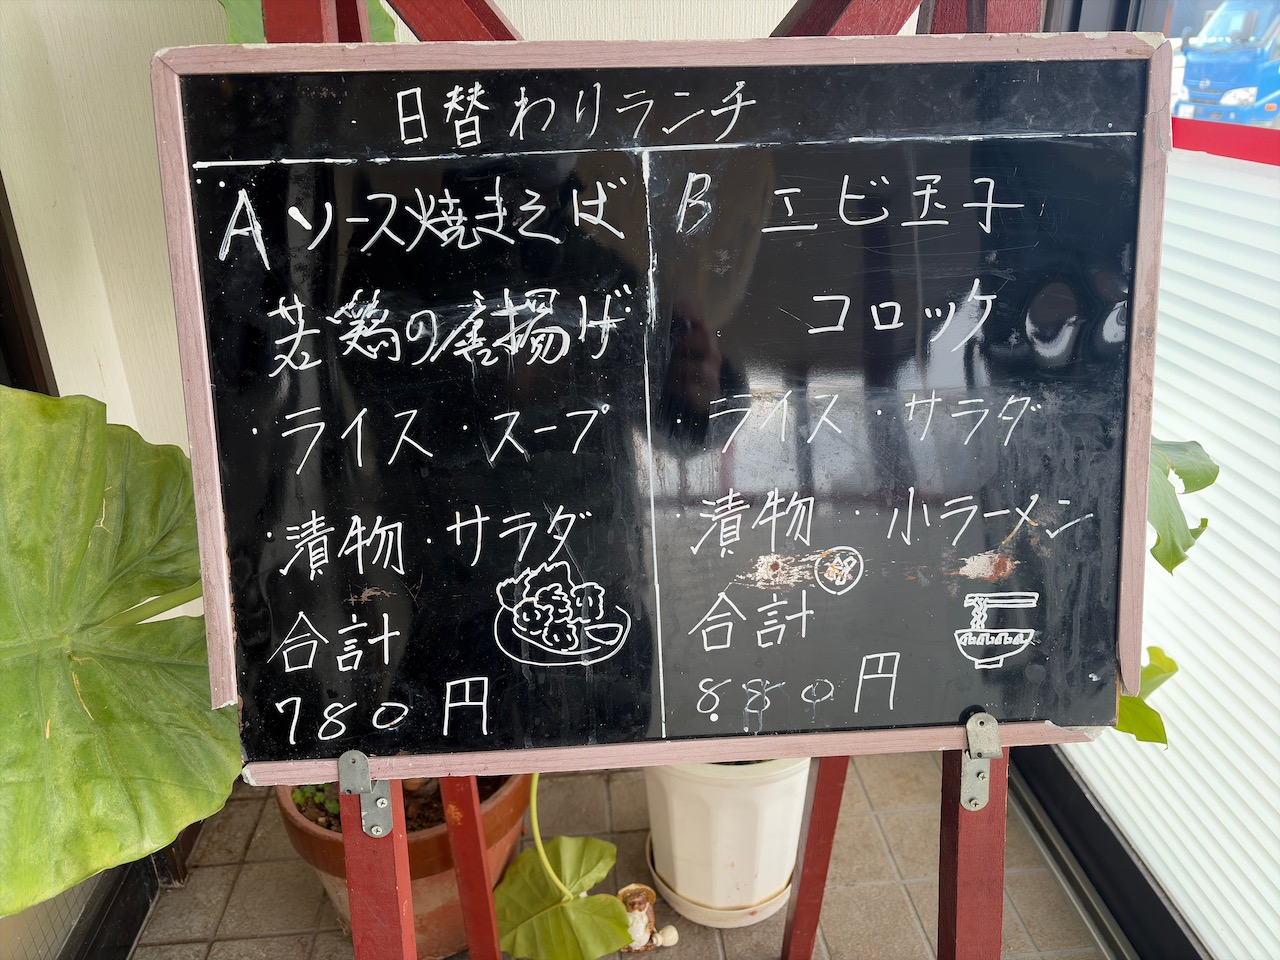 日替わりランチ
A ソース焼きそば
若鶏の唐揚げ
・ライス・スープ
・漬物・サラダ
合計
780円
B エビ玉子
コロッケ
・ライス・サラダ
・漬物・小ラーメン
合計
880円